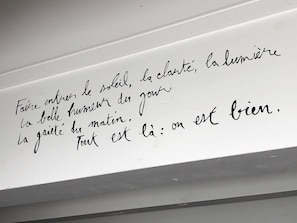 Faire entrer le soleil, la clarté, la lumière
la belle humeur du jour
la gaieté du matin.
Tout est là : on est bien.